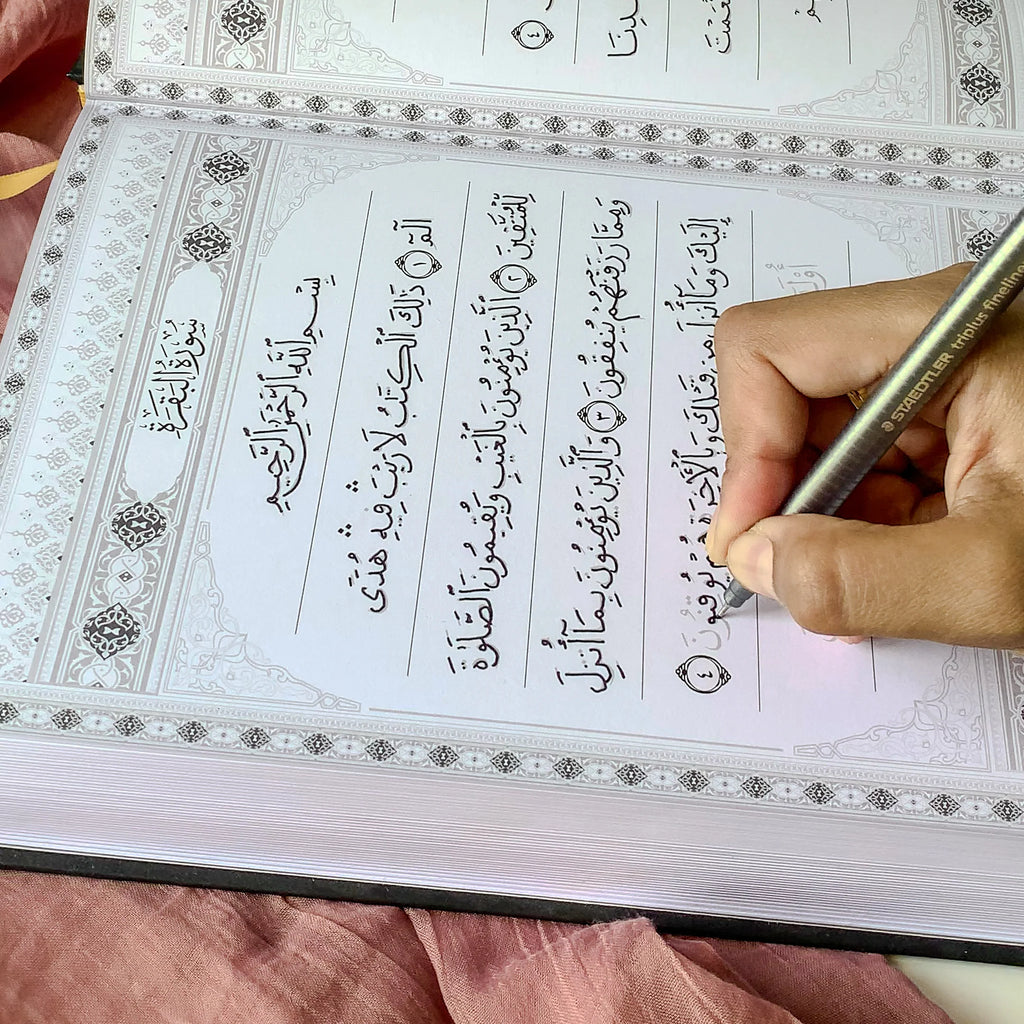 سُورَةُ الْبَقَرَةِ
بِسْمِ اللَّهِ الرَّحْمَٰنِ الرَّحِيمِ
الٓمٓ ١ ذَٰلِكَ ٱلْكِتَٰبُ لَا رَيْبَ ۛ فِيهِ ۛ هُدًى
لِّلْمُتَّقِينَ ٢ ٱلَّذِينَ يُؤْمِنُونَ بِٱلْغَيْبِ وَيُقِيمُونَ ٱلصَّلَوٰةَ
وَمِمَّا رَزَقْنَٰهُمْ يُنفِقُونَ ٣ وَٱلَّذِينَ يُؤْمِنُونَ بِمَآ أُنزِلَ
إِلَيْكَ وَمَآ أُنزِلَ مِن قَبْلِكَ وَبِٱلْأَخِرَةِ هُمْ يُوقِنُونَ ٤
STAEDTLER triplus fineliner